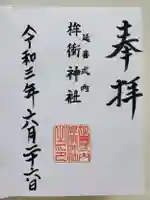 奉拝
延喜式内
桙衝神社
令和三年六月二十六日